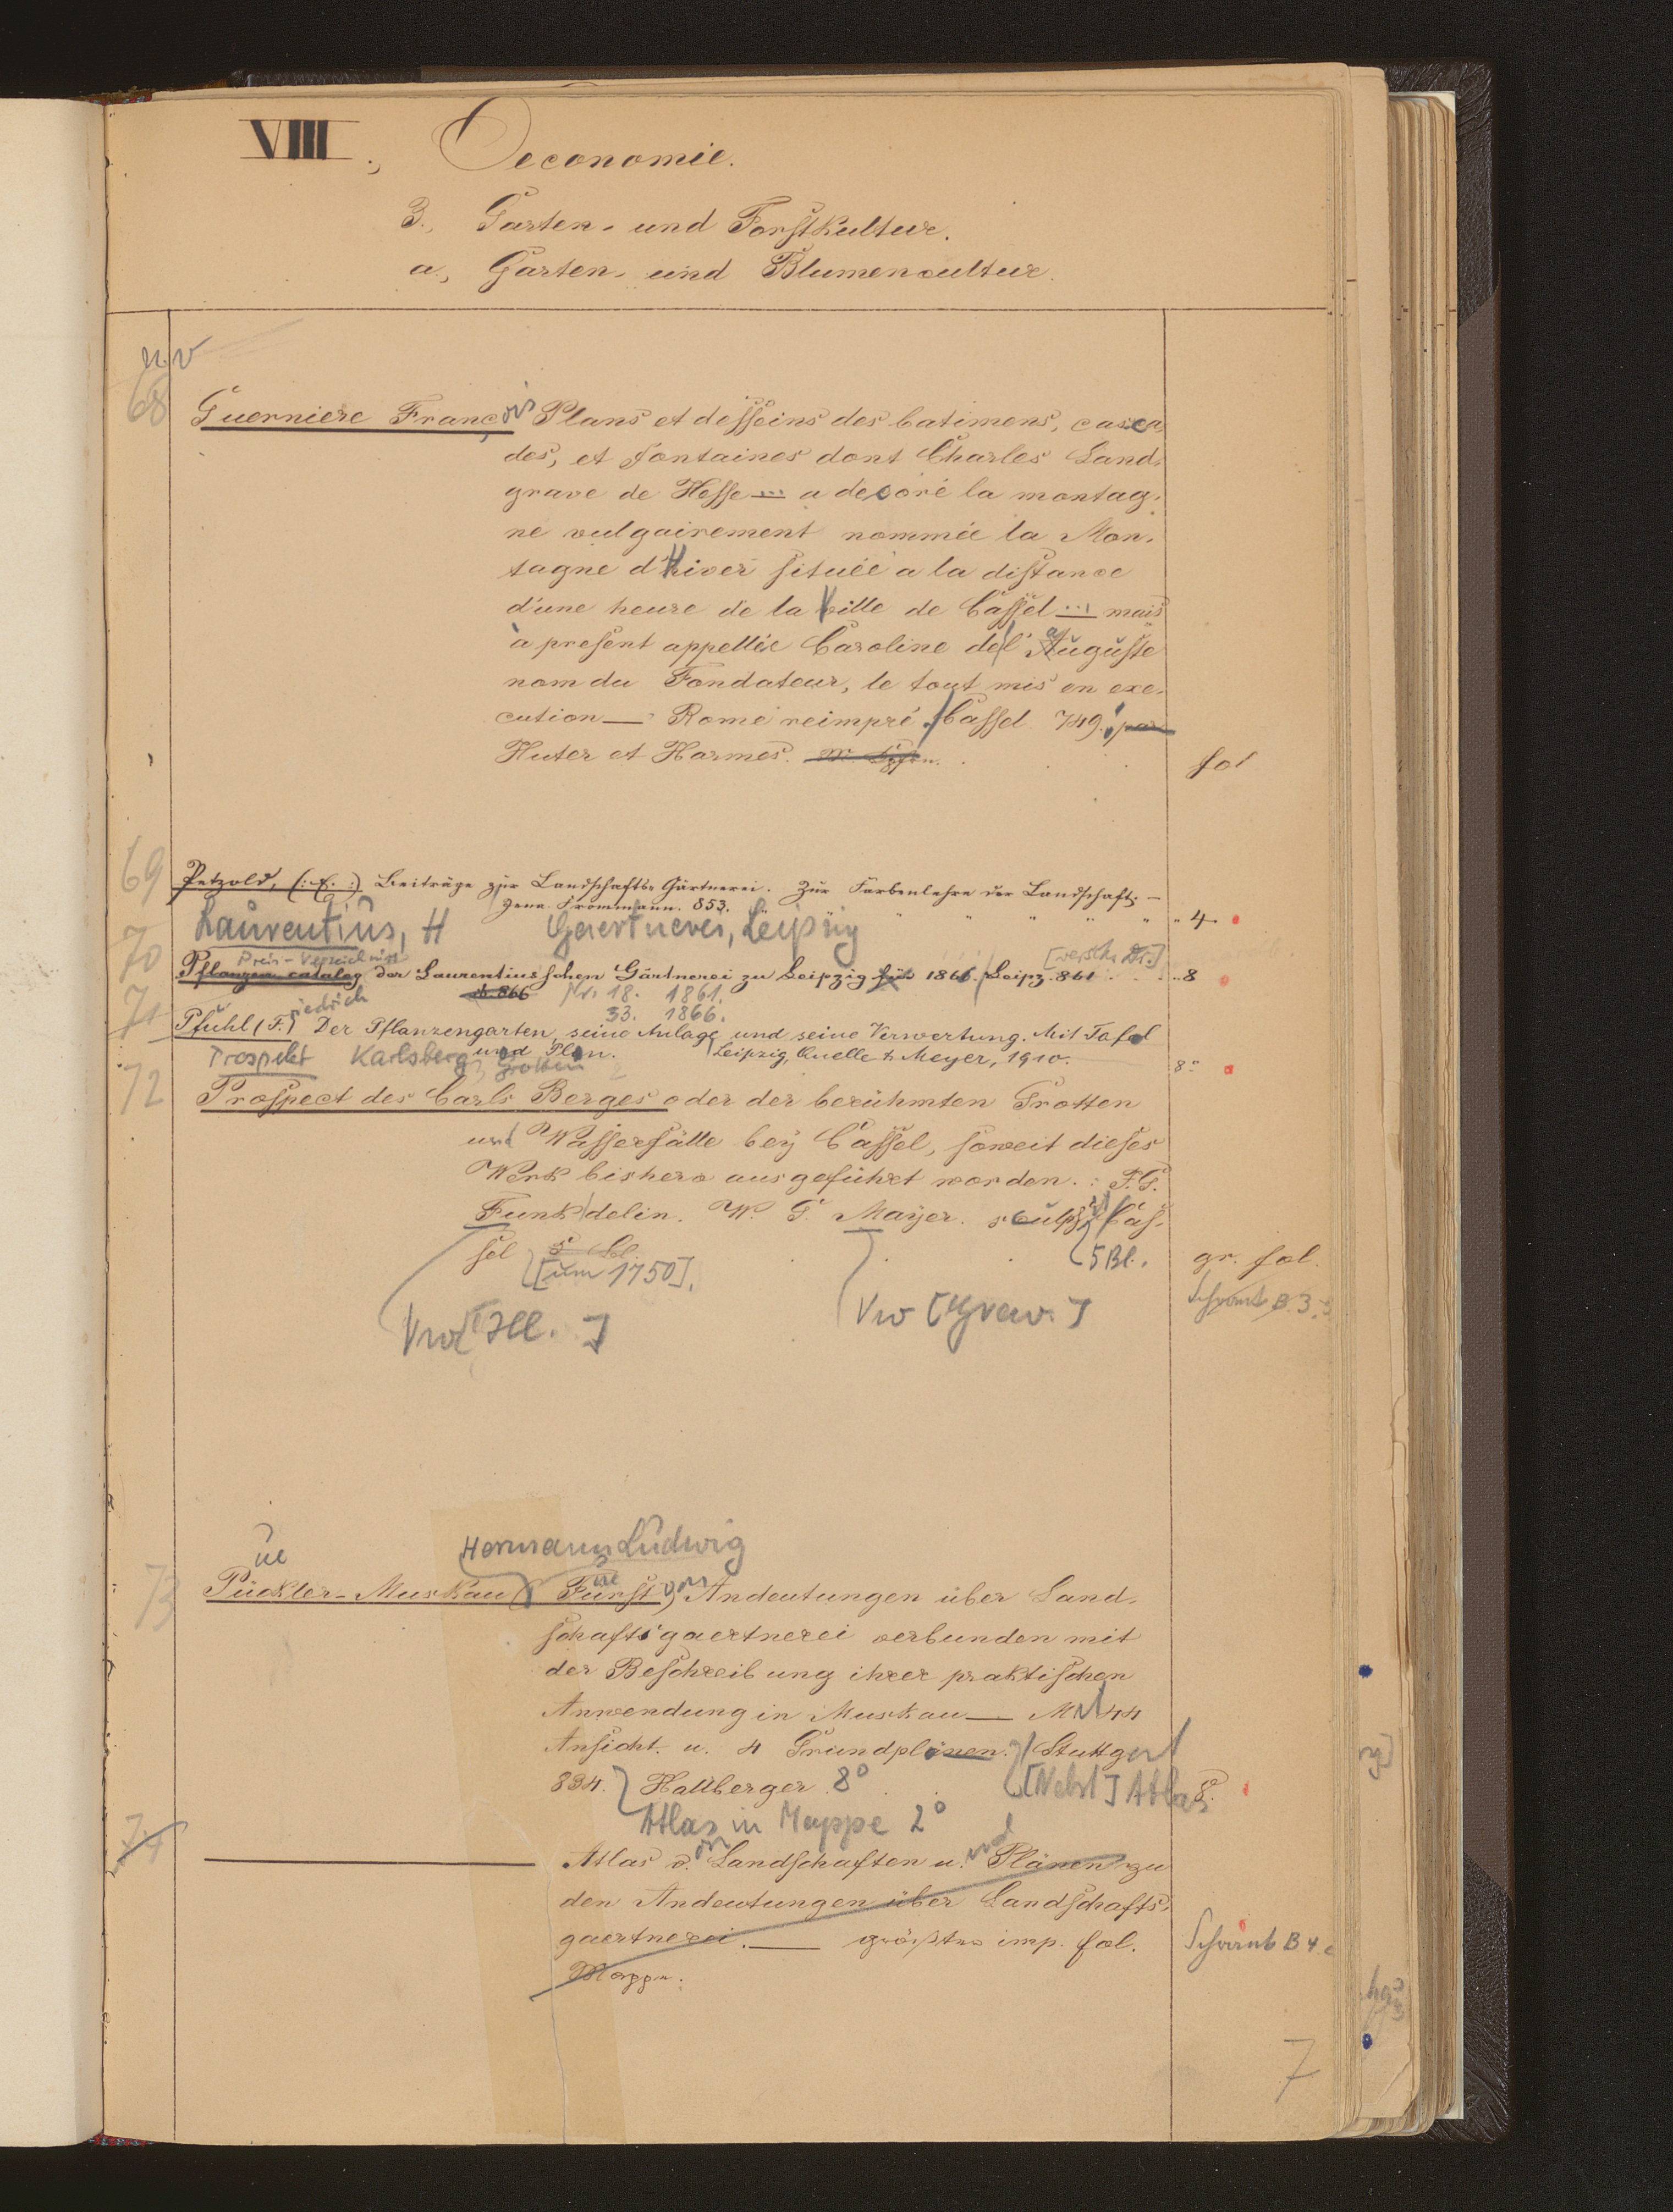 VIII., Oeconomie.
3., Garten- und Forstkultur.
a., Garten- und Blumencultur.
n.v
68
Guerniere François Plans et desseins des batimens, casca-
des, et fontaines dont Charles Land-
grave de Hesse — ... a decoré la montag-
ne vulgairement nommée la Mon-
tagne d'Hiver située a la distance
d'une heure de la ville de Cassel ... mais
à present appellée Caroline de l' Auguste
nom du Fondateur, le tout mis en exe-
cution — Rome reimpré. Cassel 749. par
Huter et Harmes.
fol
69 Petzold, (:E.:) Beiträge zur Landschafts-Gärtnerei. Zur Farbenlehre der Landschaft. —
Jena Frommann. 853. " " " " " " " 4
Laurentius, H Gaertnerei, Leipzig
70 Preis-Verzeichniss [versch. Nr.]
Pflanzen catalog der Laurentiusschen Gärtnerei zu Leipzig für 1866. Leipz. 861 . . . 8
866 Nr. 18. 1861.
33. 1866.
71 Pfuhl (F.) riedrich Der Pflanzengarten, seine Anlage und seine Verwertung. Mit Tafel
und Plan. Leipzig, Quelle & Meyer, 1910. 8°
Prospekt Karlsberg, Grotten
72 Prospect des Carls Berges oder der berühmten Grotten
und Wasserfälle bey Cassel, soweit dieses
Werk bishero ausgeführt worden. : F. G.
Funk delin. W. G. Mayer. sculps. Cas-
sel 5 Bl. gr. fol.
[um 1750].
Schrank B. 3.
Vw [Ill. ] Vw [Grav.]
Hermann Ludwig
ue
73 Pückler-Muskau Fürst von Andeutungen über Land-
schaftsgaertnerei verbunden mit
der Beschreibung ihrer praktischen
Anwendung in Muskau — M 44
Ansicht. u. 4 Grundplänen. Stuttgart
834. Hallberger 8° [Nebst] Atlas 8.
Atlas in Mappe 2°
74 ——— Atlas v. on Landschaften u. nd Plänen zu
den Andeutungen über Landschafts-
gaertnerei. — größtes imp. fol. Schrank B 4
Mappe.
7